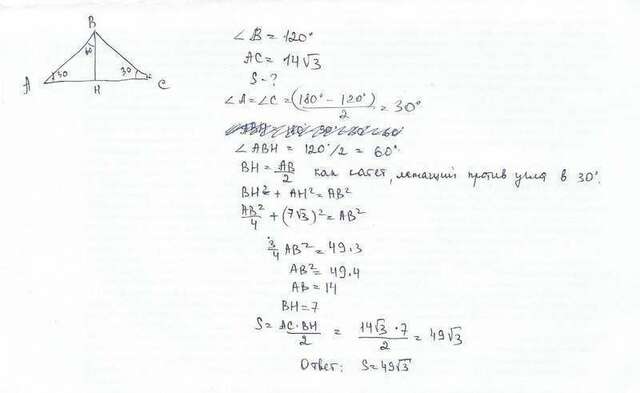 B
60
A
30
30
C
H
∠B = 120°
AC = 14√3
S-?
∠A=∠C = (180° - 120°)/2 = 30°
∠ABH = 120°/2 = 60°.
BH = AB/2 как катет, лежащий против угла в 30°.
BH² + AH² = AB²
AB²/4 + (7√3)² = AB²
3/4 AB² = 49·3
AB² = 49·4
AB = 14
BH = 7
S = AC·BH/2 = 14√3·7/2 = 49√3
Ответ: S=49√3